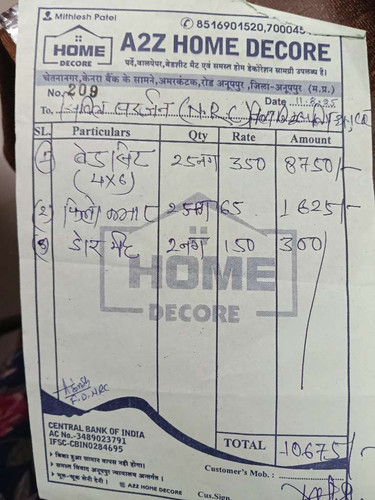 Mithlesh Patel
8516901520,70004
HOME
DECORE
A2Z HOME DECORE
पर्दे, वालपेपर, बेडशीट मैट एवं समस्त होम डेकोरेशन सामग्री उपलब्ध है।
चेतनानगर,केनरा बैंक के सामने,अमरकंटक,रोड अनूपपुर ,जिला-अनूपपुर (म.प्र.)
No. 209
Date
To. सिविल सर्जन (N.R.C)
SL. Particulars Qty Rate Amount
1 बेडसिट 25नग 350 8750/-
(4x6)
2 25नग 65 1625/-
3 डोर मेट 2नग 150 300/
HOME
DECORE
F.D. NRC
CENTRAL BANK OF INDIA
AC No.-3489023791
IFSC-CBIN0284695
TOTAL 10675/-
▸ बिका हुआ सामान वापस नहीं होगा।
▸ समस्त विवाद अनूपपुर न्यायालय अन्तर्गत।
▸ भूल-चूक लेनी देनी।
A2Z HOME DECORE
Customer's Mob. :
Cus.Sign